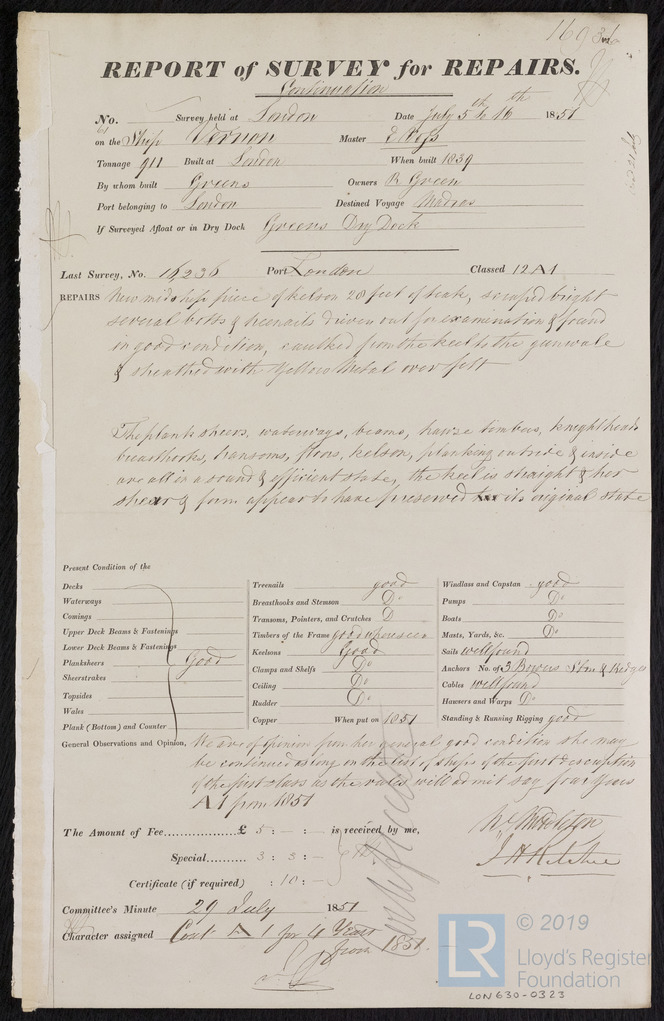 REPORT of SURVEY for REPAIRS.
Continuation
No. Survey held at London Date July 5th to 16th 1851
on the Ship Vernon Master
Tonnage 911 Built at London When built 1839
By whom built Greens Owners R Green
Port belonging to London Destined Voyage Madras
If Surveyed Afloat or in Dry Dock Greens Dry Dock
Last Survey, No. 16236 Port London Classed 12 A 1
REPAIRS New midship piece of kelson 28 feet of teak, scraped bright
several bolts & treenails driven out for examination & found
in good condition, caulked from the keel to the gunwale
& sheathed with Yellow Metal over felt
The plank sheers, waterways, beams, hawse timbers, knight heads
breasthooks, transoms, floors, kelson, planking outside & inside
are all in a sound & efficient state, the keel is straight & her
shear & form appear to have preserved its original state
Present Condition of the
Decks
Waterways
Comings
Upper Deck Beams & Fastenings
Lower Deck Beams & Fastenings
Planksheers Good
Sheerstrakes
Topsides
Wales
Plank (Bottom) and Counter
Treenails good
Breasthooks and Stemson Do
Transoms, Pointers, and Crutches D
Timbers of the Frame good where seen
Keelsons Good
Clamps and Shelfs Do
Ceiling Do
Rudder Do
Copper When put on 1851
Windlass and Capstan good
Pumps Do
Boats Do
Masts, Yards, &c. Do
Sails well found
Anchors No. of 3 Bowers Stm & Kedges
Cables well found
Hawsers and Warps Do
Standing & Running Rigging good
General Observations and Opinion, We are of opinion from her general good condition she may
be continued as long on the list of ships of the first description
of the first class as the rules will admit say four Years
A 1 from 1851
The Amount of Fee £ 5 : - : - is received by me,
Special 3 : 3 : -
Certificate (if required) : 10 : -
Certificate
J H Ritchie
Committee's Minute 29 July 1851
Character assigned Cont A 1 for 4 Years
from 1851
LR
© 2019
Lloyd's Register
Foundation
LON630-0323